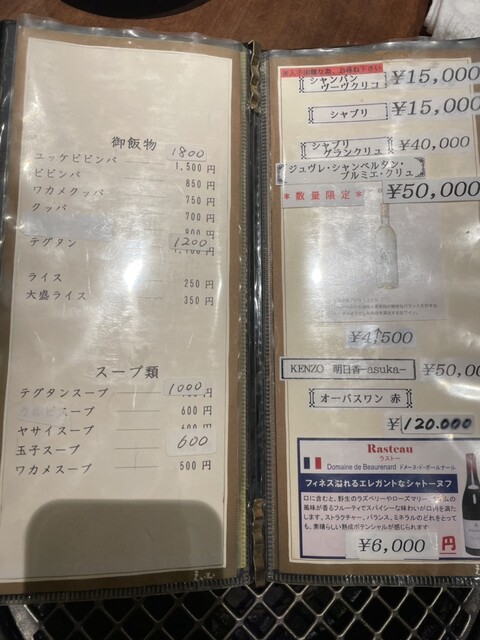 御飯物
1800
ユッケビビンバ 1,500円
ビビンバ 850円
ワカメクッパ 750円
クッパ 700円
テグタン 1200
ライス 250円
大盛ライス 350円
スープ類
テグタンスープ 1000
スープ 600円
ヤサイスープ 600円
玉子スープ 600
ワカメスープ 500円
シャンパン
ヴーヴクリコ
¥15,000
シャブリ ¥15,000
シャブリ
グランクリュ
¥40,000
ジュヴレ・シャンベルタン・
プルミエ・クリュ
＊数量限定＊ ¥50,000
¥41500
KENZO 明日香-asuka- ¥50,00
オーパスワン 赤
¥120.000
Rasteau
ラストー
Domaine de Beaurenard ドメーヌ・ド・ボールナール
フィネス溢れるエレガントなシャトーヌフ
口に含むと、野生のラズベリーやローズマリー、
風味が香るフルーティでスパイシーな味わいが口
たします。ストラクチャー、バランス、ミネラルのどれをとって
も、素晴らしい熟成ポテンシャルが感じられます
¥6,000 円